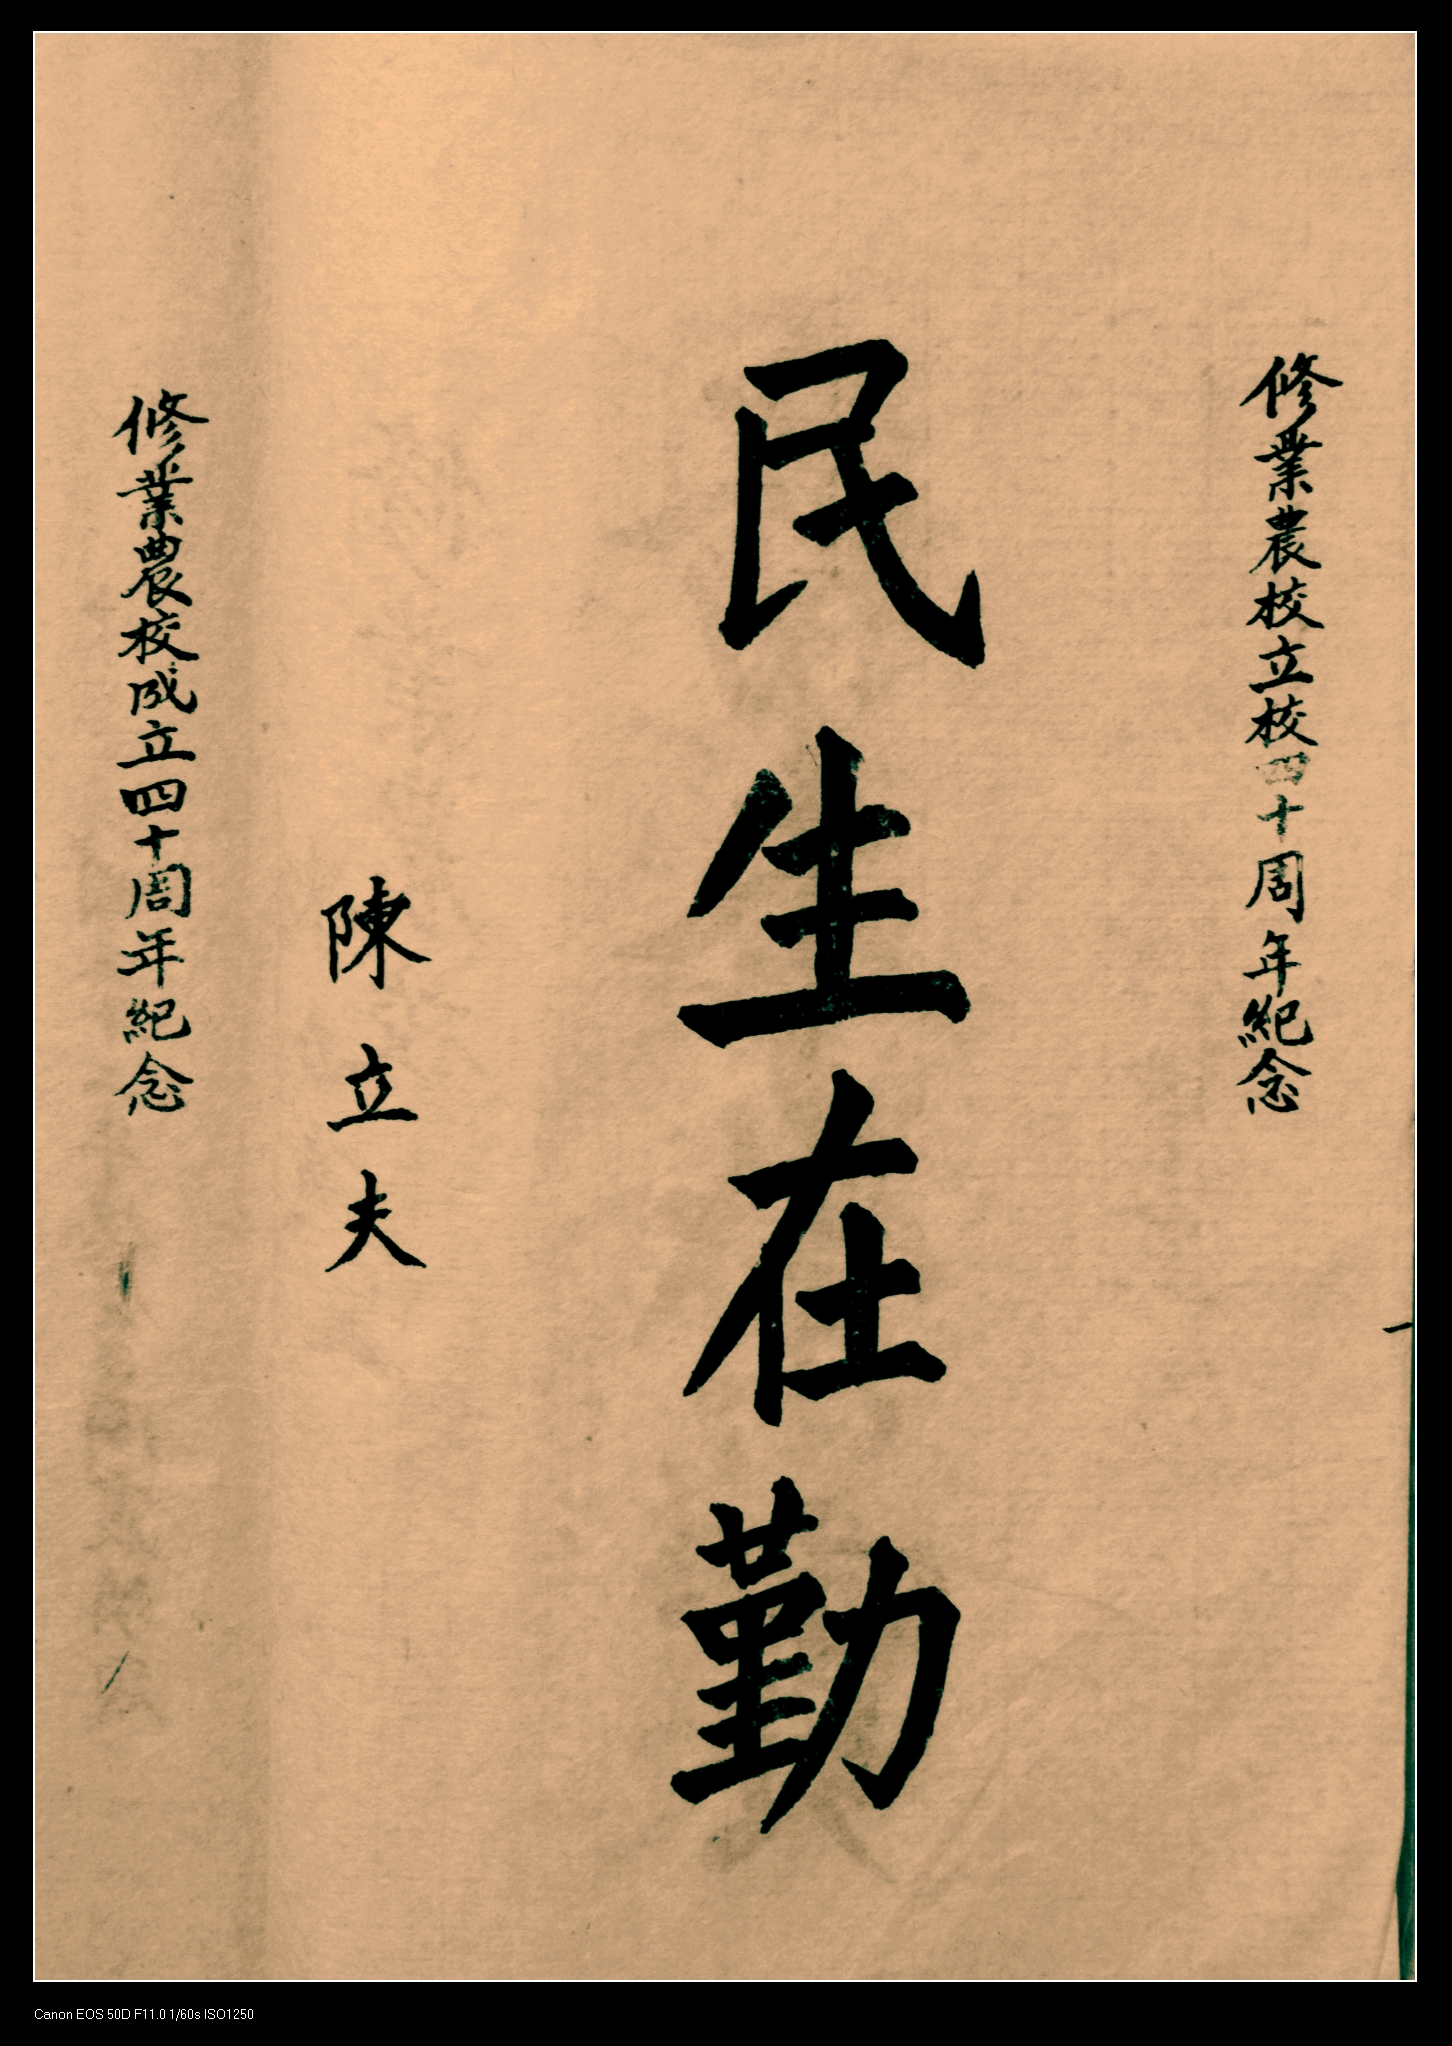 修業農校立校四十周年紀念
民生在勤
陳立夫
修業農校成立四十周年紀念
Canon EOS 50D F11.0 1/60s ISO1250